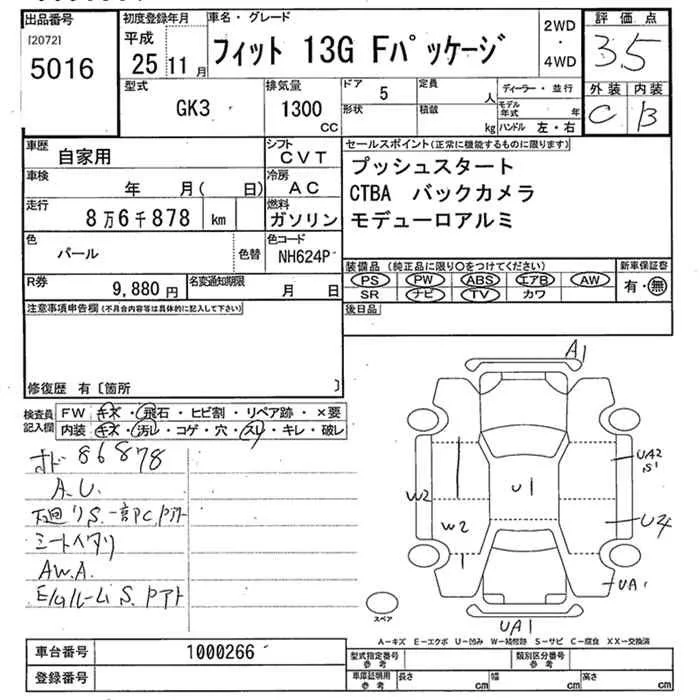 出品番号
[2072]
5016
初度登録年月
平成
25 11 月
車名・グレード
フィット 13G Fパッケージ
2WD
・
4WD
評価点
3.5
外装 内装
C B
型式
GK3
排気量
1300
CC
ドア 5
形状
定員 人
積載 kg
ディーラー・並行
モデル年式 年
ハンドル 左・右
車歴
自家用
シフト
CVT
セールスポイント(正常に機能するものに限ります)
プッシュスタート
CTBA バックカメラ
モデューロアルミ
車検
年 月( 日)
冷房
AC
走行
8万6千878 km
燃料
ガソリン
色
パール
色替
色コード
NH624P
装備品(純正品に限り○をつけてください)
PS PW ABS エアB AW
SR ナビ TV カワ
新車保証書
有・無
R券
9,880 円
名変通知期限
月 日
後日品
注意事項申告欄(不具合内容等は具体的に記入して下さい)
修復歴 有〔箇所 〕
検査員記入欄
FW キズ・飛石・ヒビ割・リペア跡・×要
内装 キズ・汚レ・コゲ・穴・スレ・キレ・破レ
86878
A.U.
AW.A.
A1
UA2
S1
W2
U1
W2
U4
UA1
UA1
スペア
A−キズ E−エクボ U−凹み W−補修跡 S−サビ C−腐食 XX−交換済
車台番号
1000266
登録番号
型式指定番号
参考
類別区分番号
参考
車庫証明用
参考
長さ cm 幅 cm 高さ cm